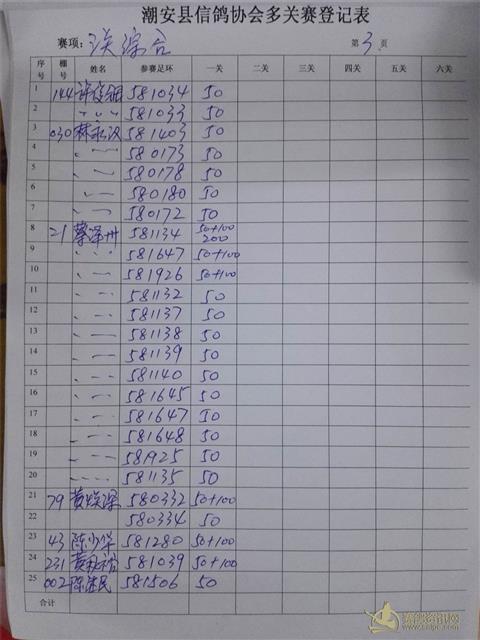 潮安县信鸽协会多关赛登记表
赛项: 综合 第 3 页
序号 棚号 姓名 参赛足环 一关 二关 三关 四关 五关 六关
1 144 581034 50
2 581033 50
3 030 581403 50
4 580173 50
5 580178 50
6 580180 50
7 580172 50
8 21 蔡泽州 581134 50+100 200
9 581647 50+100
10 581926 50+100
11 581132 50
12 581137 50
13 581138 50
14 581139 50
15 581140 50
16 581645 50
17 581647 50
18 581648 50
19 581925 50
20 581135 50
21 79 580332 50+100
22 580334 50
23 43 陈少华 581280 50+100
24 231 581039 50+100
25 002 581506 50
合计